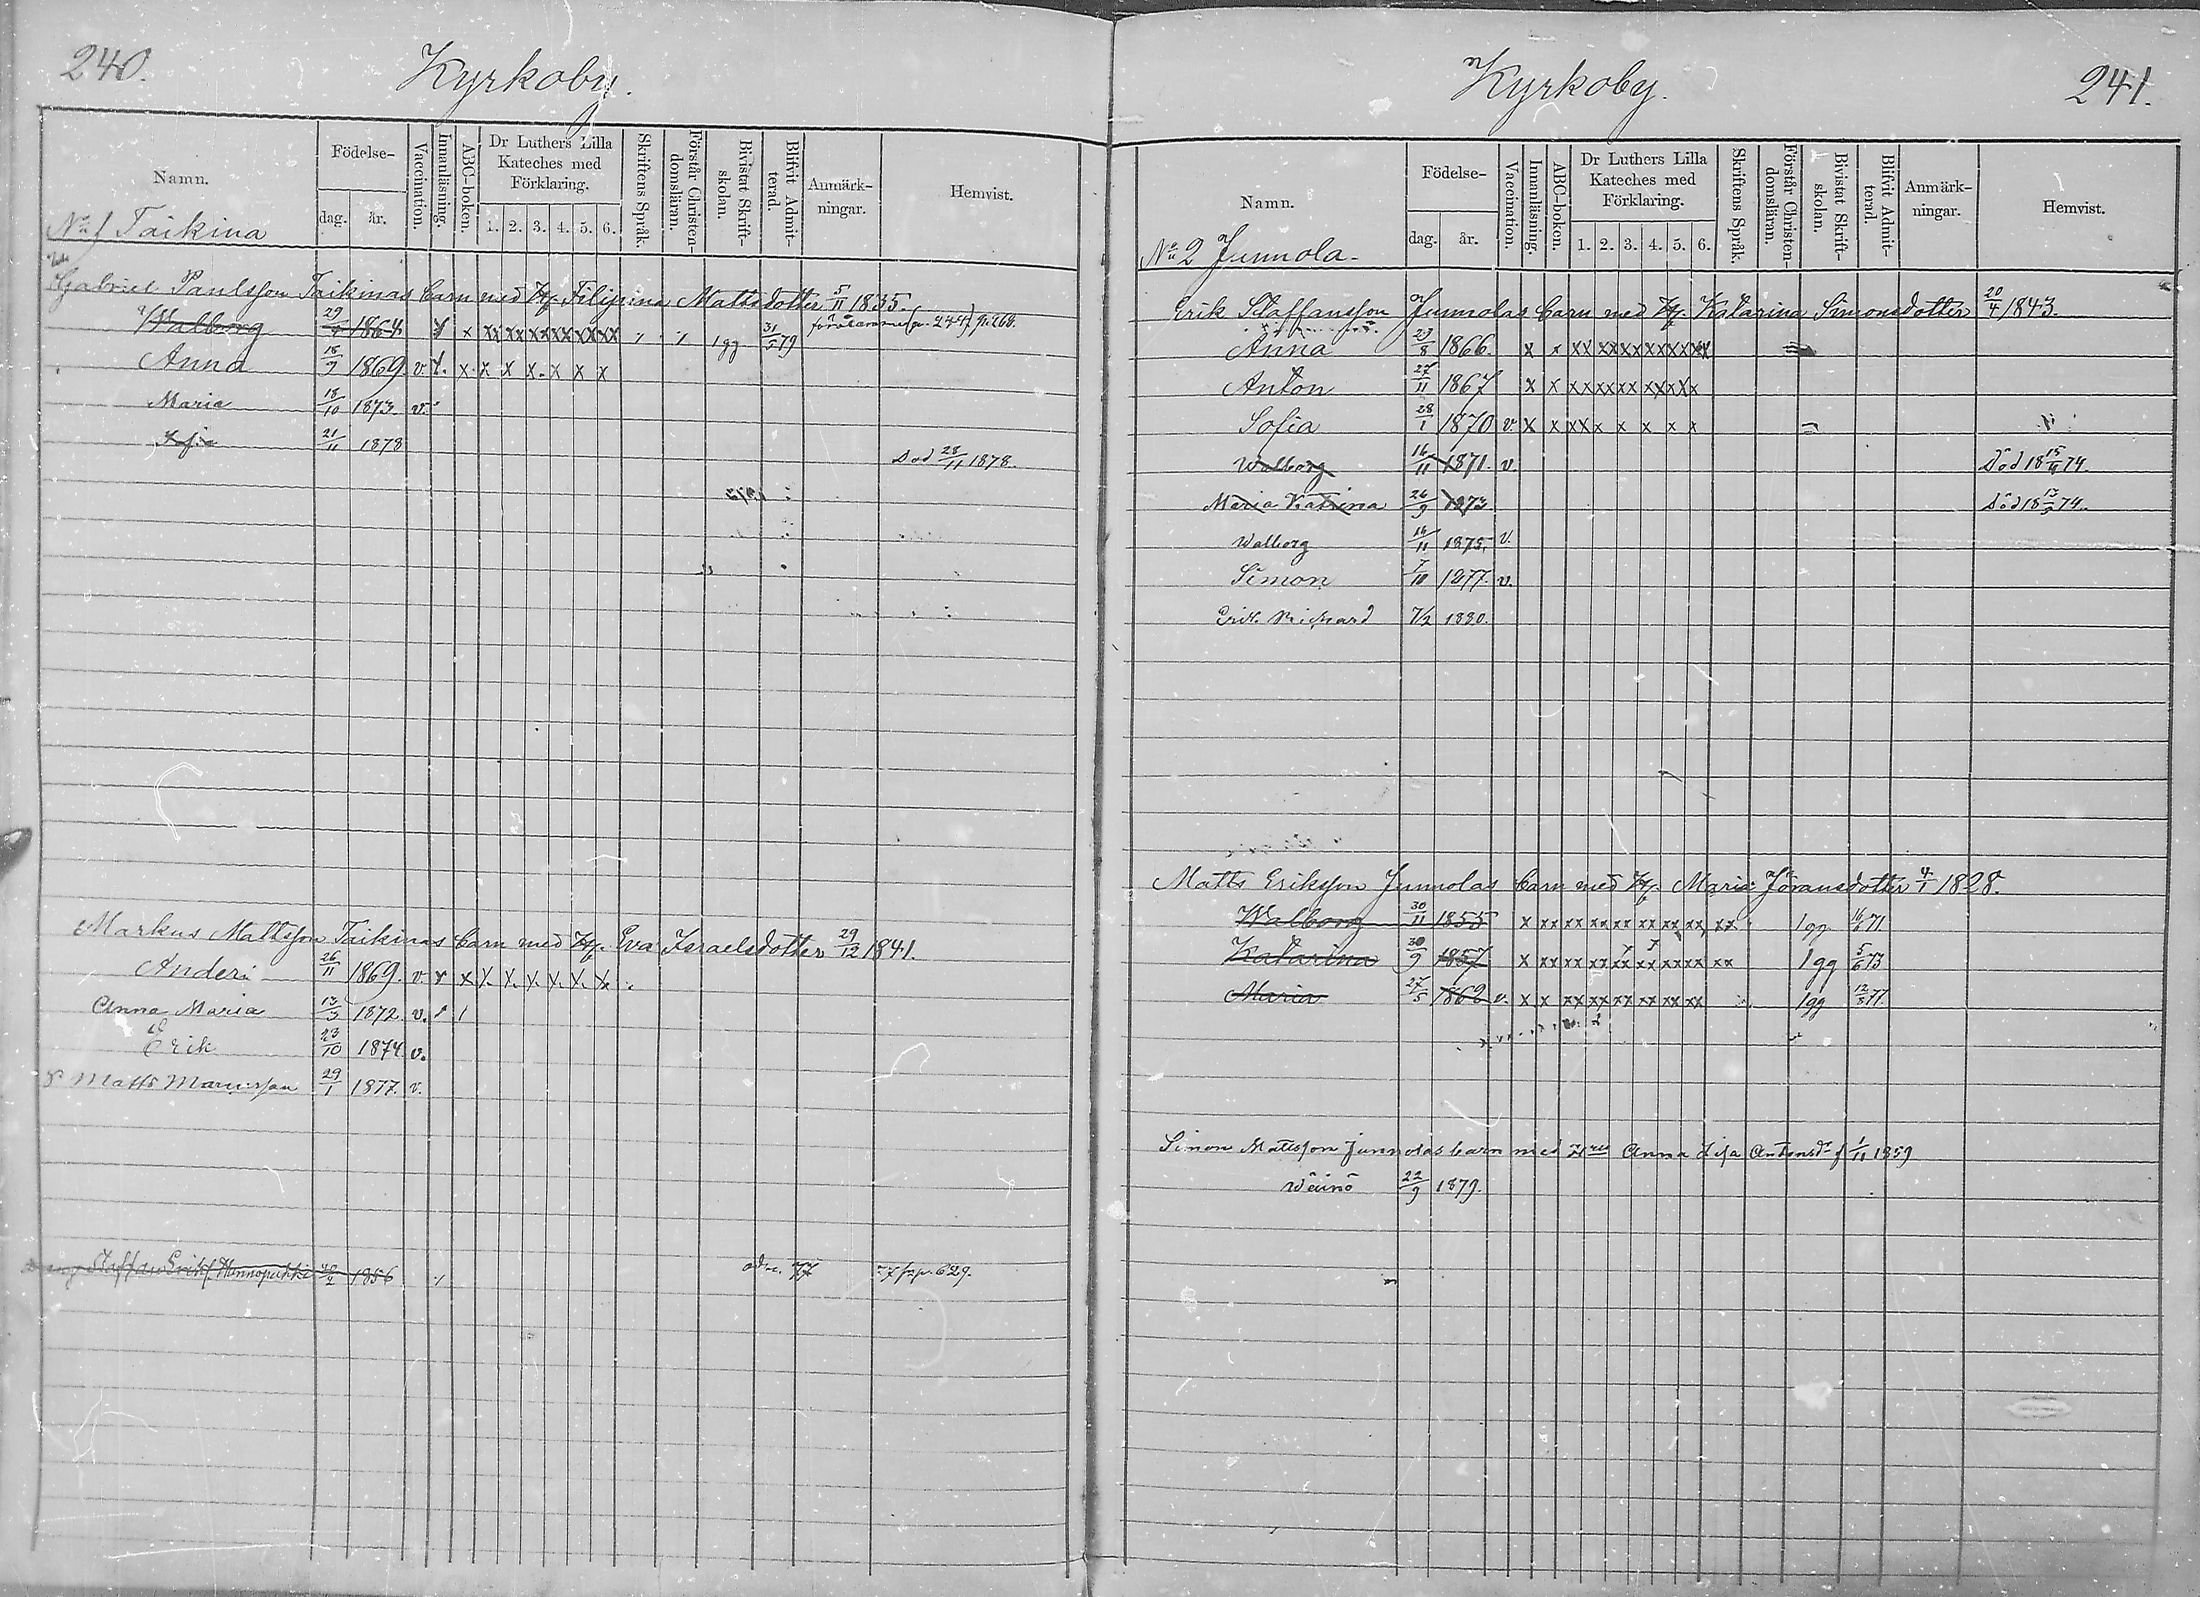 240.
Kyrkoby.
Namn.
Födelse-
dag.
år.
Vaccination.
Innanläsning.
ABC-boken.
Dr Luthers Lilla Kateches med Förklaring.
1. 2. 3. 4. 5. 6.
Skriftens Språk.
Förstår Christen-domsläran.
Bivistat Skrift-skolan.
Blifvit Admit-terad.
Anmärk-ningar.
Hemvist.
No 1 Taikina
Gabriel Paulsson Taikinas barn med Hu. Filippina Mattsdotter 5/11 1835.
Walborg 1864 x x xx xx xx xx xx xx 1 gg 31/5 79 p. 268.
Anna 18/9 1869. v. x. x. x x x. x x x
Maria 18/10 1873 v.
21/11 1878 Död 28/11 1878.
Markus Mattsson Taikinas barn med Hu. Eva Israelsdotter 29/12 1841.
Anders 26/11 1869. v. x x x. x. x. x. x. x.
Anna Maria 13/3 1872. v.
Erik 23/10 1874 v.
Matts 29/1 1877. v.
Staffan Eriks. 1856 77 p. 629.
Kyrkoby.
241.
Namn.
Födelse-
dag.
år.
Vaccination.
Innanläsning.
ABC-boken.
Dr Luthers Lilla Kateches med Förklaring.
1. 2. 3. 4. 5. 6.
Skriftens Språk.
Förstår Christen-domsläran.
Bivistat Skrift-skolan.
Blifvit Admit-terad.
Anmärk-ningar.
Hemvist.
No 2 Junnola.
Erik Staffansson Junnolas barn med Hu. Katarina Simonsdotter 20/4 1843.
Anna 23/8 1866. x x xx xx xx xx xx xx
Anton 27/11 1867 x x xx xx xx xx xx x
Sofia 28/1 1870 v x x xx x x x x x
Walborg 16/11 1871. v. Död 18 74.
Maria Katrina 26/9 1873. Död 18 74.
Walborg 16/11 1875. v.
Simon 7/10 1877. v.
Erik Richard 7/2 1880.
Matts Eriksson Junnolas barn med Hu. Maria Jöransdotter 4/1 1828.
Walborg 30/11 1855 x xx xx xx xx xx xx xx xx 1 gg 71
Katarina 30/9 1857 x xx xx xx xx xx xx xx xx 1 gg 5/6 73
Maria 27/5 1862 v. x x xx xx xx xx xx xx 1 gg 77.
Simon Mattsson Junnolas barn med Anna Lisa Antonsdr f 1/11 1859
Wäinö 22/9 1879.